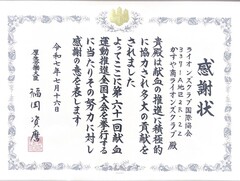 感謝状
ライオンズクラブ国際協会
337-A地区2R-2Z
かすや南ライオンズクラブ 殿
貴殿は献血の推進に積極的
に協力され多大の貢献を
されました
よってここに第六十一回献血
運動推進全国大会を挙行する
に当たりその努力に対し
感謝の意を表します
令和七年七月十六日
厚生労働大臣
福岡 資麿